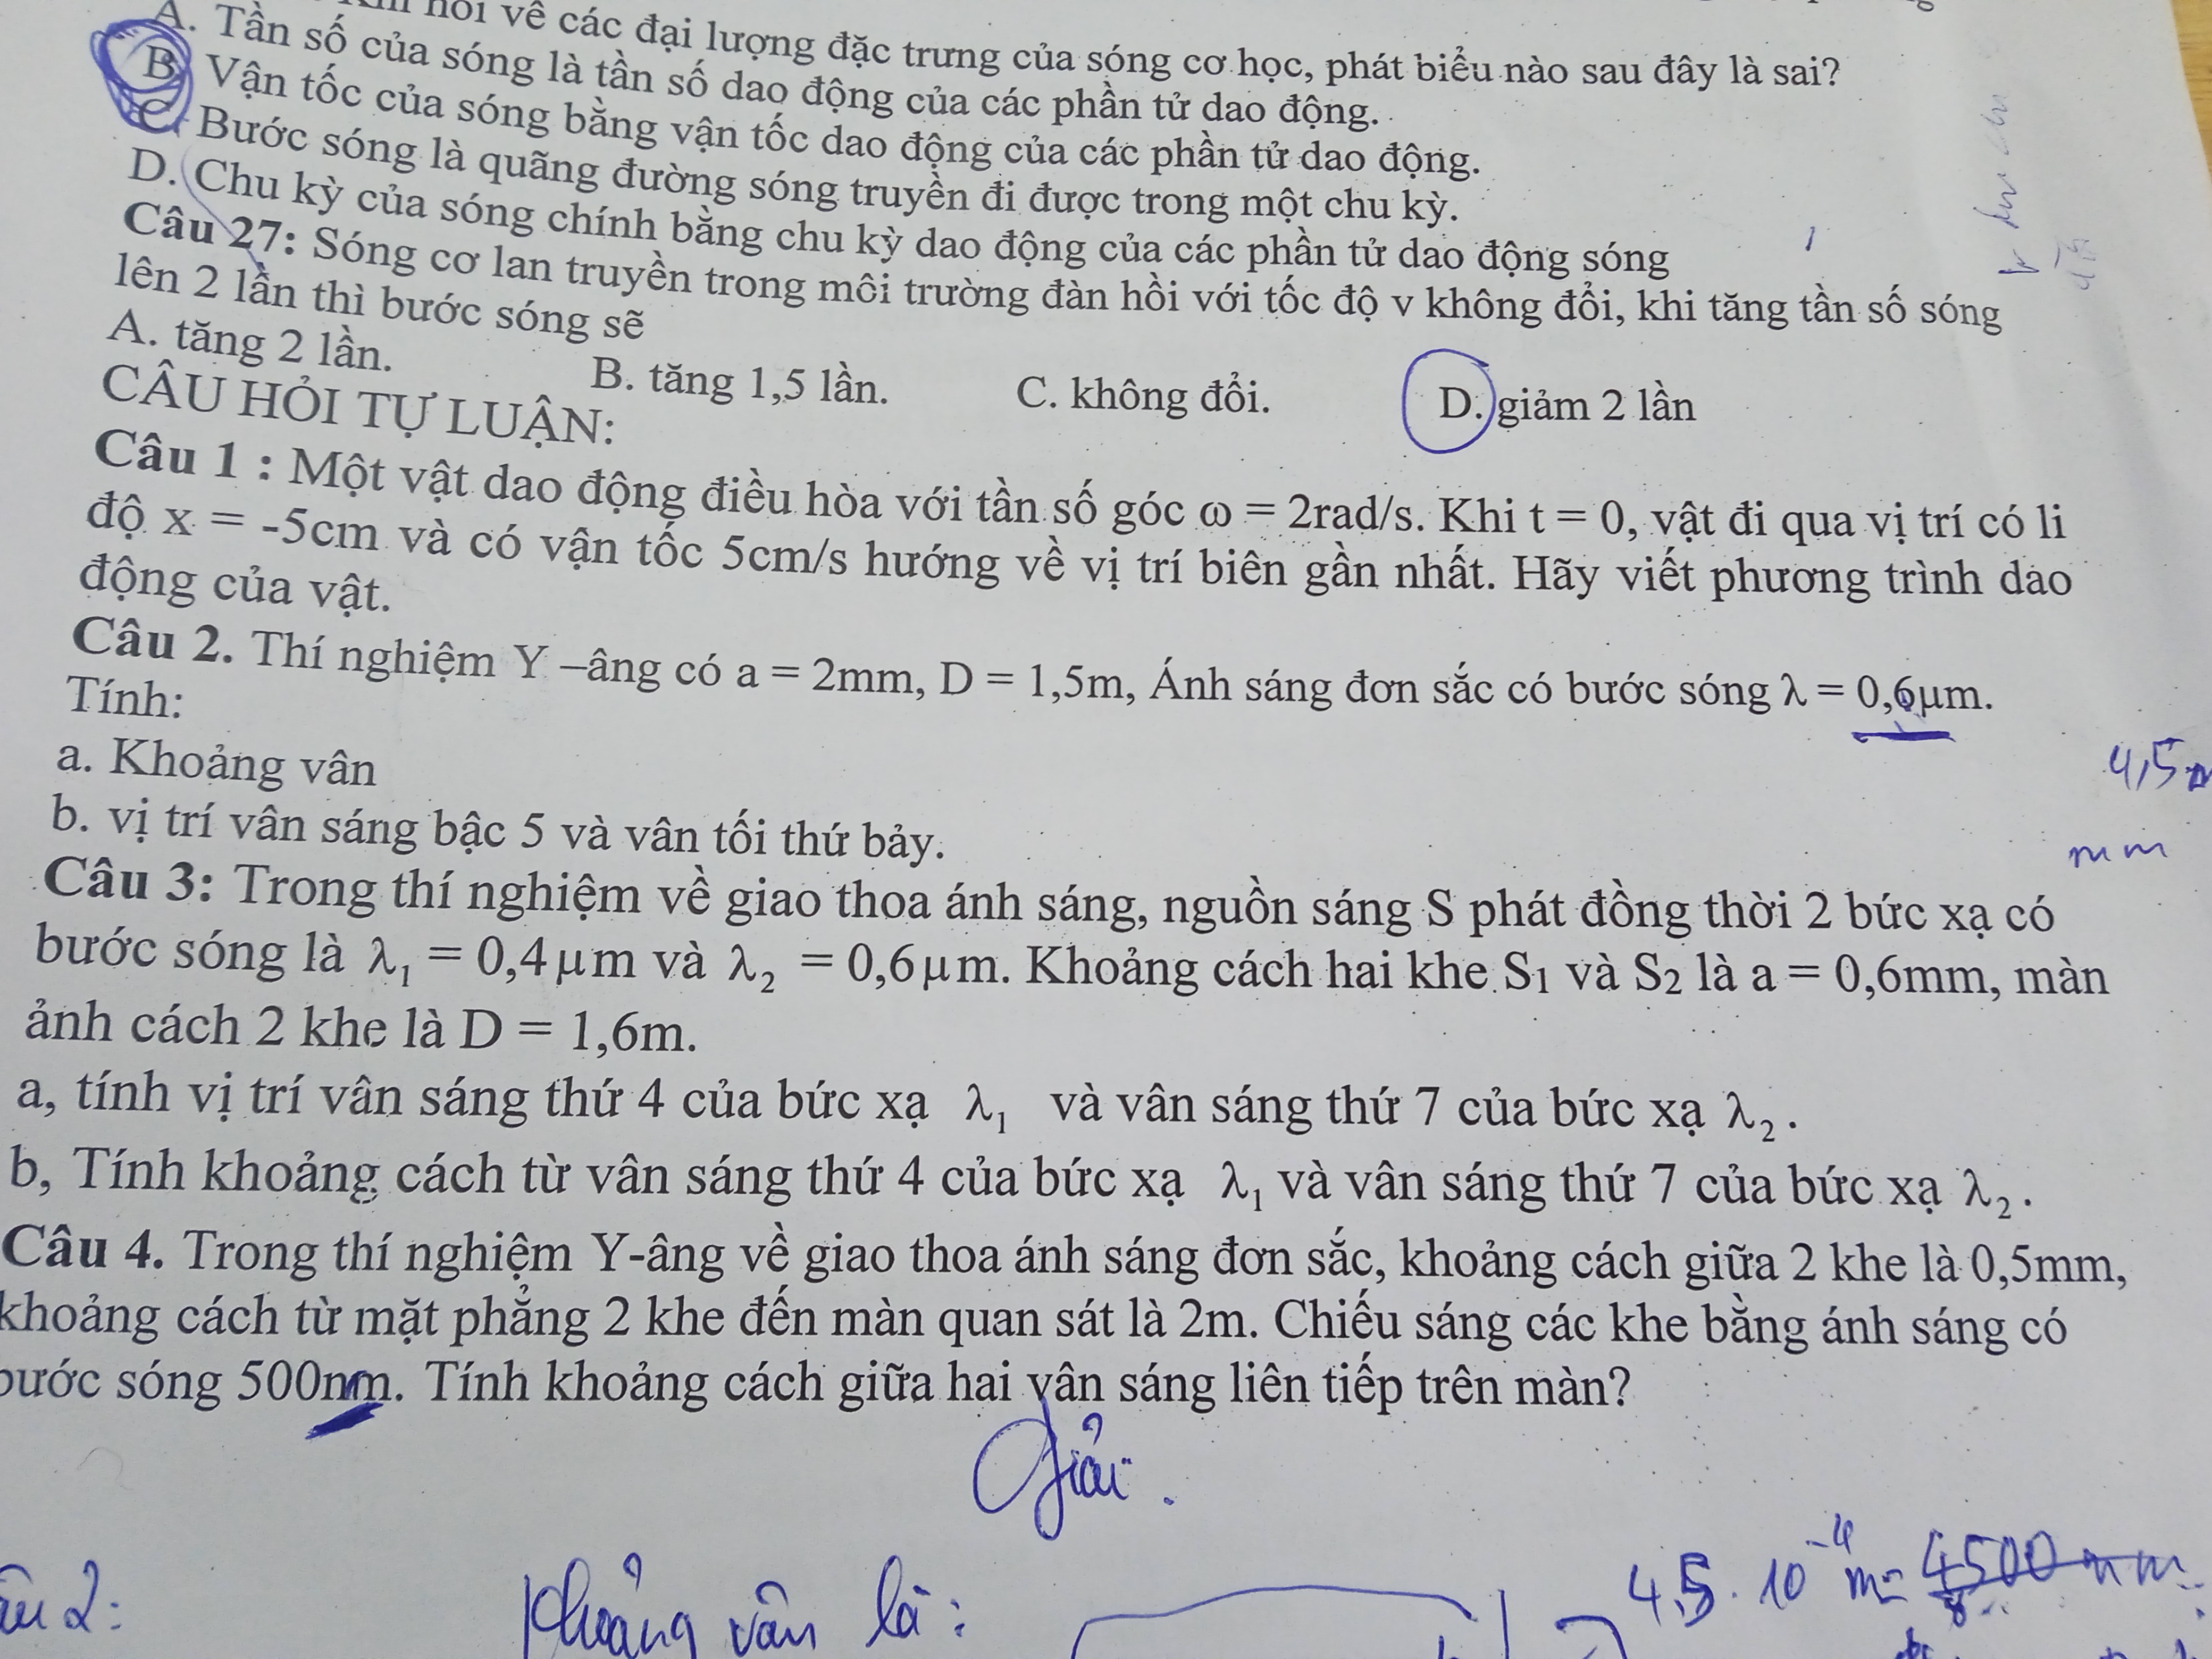 nói về các đại lượng đặc trưng của sóng cơ học, phát biểu nào sau đây là sai?
A. Tần số của sóng là tần số dao động của các phần tử dao động.
B. Vận tốc của sóng bằng vận tốc dao động của các phần tử dao động.
C. Bước sóng là quãng đường sóng truyền đi được trong một chu kỳ.
D. Chu kỳ của sóng chính bằng chu kỳ dao động của các phần tử dao động sóng
Câu 27: Sóng cơ lan truyền trong môi trường đàn hồi với tốc độ v không đổi, khi tăng tần số sóng
lên 2 lần thì bước sóng sẽ
A. tăng 2 lần. B. tăng 1,5 lần. C. không đổi. D. giảm 2 lần
CÂU HỎI TỰ LUẬN:
Câu 1 : Một vật dao động điều hòa với tần số góc ω = 2rad/s. Khi t = 0, vật đi qua vị trí có li
độ x = -5cm và có vận tốc 5cm/s hướng về vị trí biên gần nhất. Hãy viết phương trình dao
động của vật.
Câu 2. Thí nghiệm Y –âng có a = 2mm, D = 1,5m, Ánh sáng đơn sắc có bước sóng λ = 0,6μm.
Tính:
a. Khoảng vân
4,5
b. vị trí vân sáng bậc 5 và vân tối thứ bảy.
mm
Câu 3: Trong thí nghiệm về giao thoa ánh sáng, nguồn sáng S phát đồng thời 2 bức xạ có
bước sóng là λ₁ = 0,4μm và λ₂ = 0,6μm. Khoảng cách hai khe S1 và S2 là a = 0,6mm, màn
ảnh cách 2 khe là D = 1,6m.
a, tính vị trí vân sáng thứ 4 của bức xạ λ₁ và vân sáng thứ 7 của bức xạ λ₂.
b, Tính khoảng cách từ vân sáng thứ 4 của bức xạ λ₁ và vân sáng thứ 7 của bức xạ λ₂.
Câu 4. Trong thí nghiệm Y-âng về giao thoa ánh sáng đơn sắc, khoảng cách giữa 2 khe là 0,5mm,
khoảng cách từ mặt phẳng 2 khe đến màn quan sát là 2m. Chiếu sáng các khe bằng ánh sáng có
bước sóng 500nm. Tính khoảng cách giữa hai vân sáng liên tiếp trên màn?
Giải.
4,5. 10⁻⁴ m = 4500
2: Khoảng vân là :